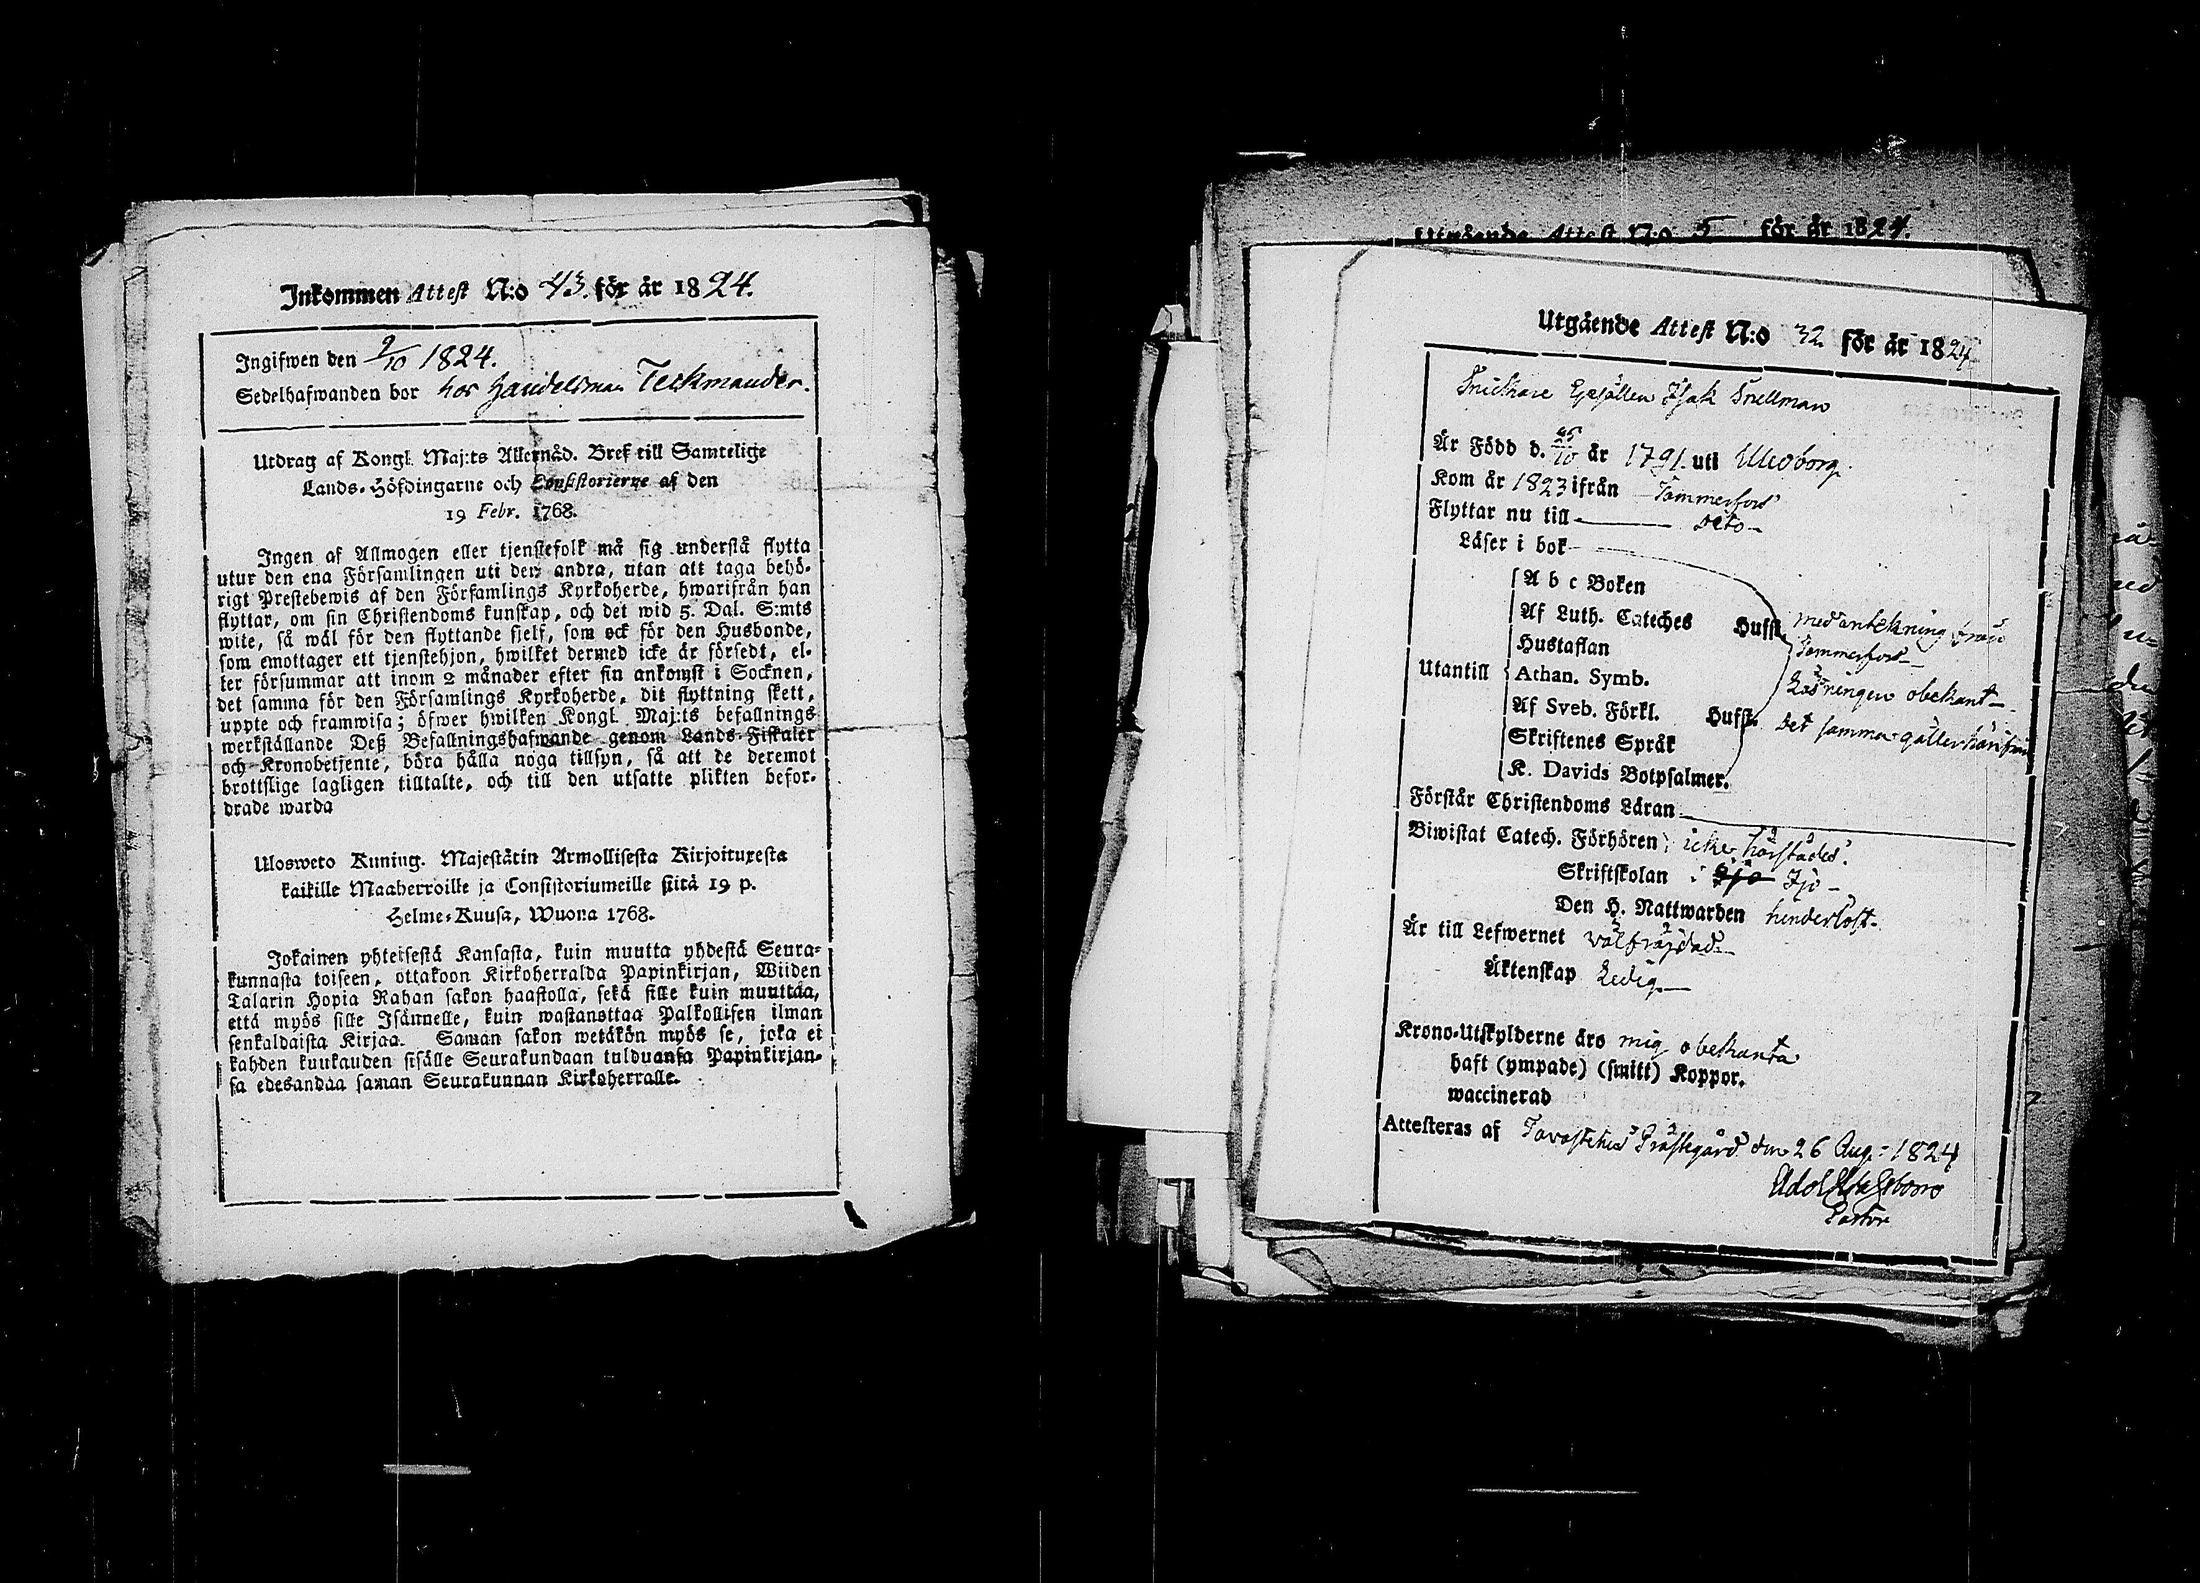 Inkommen Attest N:o 43. för år 1824.
Ingifwen den 9/10 1824.
Sedelhafwanden bor hos Handelsman Teckmander.
Utdrag af Kongl. Maj:ts Allernåd. Bref till Samtelige
Lands-Höfdingarne och Consistorierne af den
19 Febr. 1768.
Ingen af Allmogen eller tjenstefolk må sig understå flytta
utur den ena Församlingen uti den andra, utan att taga behö-
rigt Prestebewis af den Församlings Kyrkoherde, hwarifrån han
flyttar, om sin Christendoms kunskap, och det wid 5. Dal. S:mts
wite, så wäl för den flyttande sjelf, som ock för den Husbonde,
som emottager ett tjenstehjon, hwilket dermed icke är försedt, el-
ler försummar att inom 2 månader efter sin ankomst i Socknen,
det samma för den Församlings Kyrkoherde, dit flyttning skett,
uppte och framwisa; öfwer hwilken Kongl. Maj:ts befallnings
werkställande Deß Befallningshafwande genom Lands-Fiskaler
och Kronobetjente, böra hålla noga tillsyn, så att de deremot
brottslige lagligen tilltalte, och till den utsatte plikten befor-
drade warda
Ulosweto Kuning. Majestätin Armollisesta Kirjoituxesta
kaikille Maaherroille ja Consistoriumeille siitä 19 p.
Helme-Kuusa, Wuona 1768.
Jokainen yhteisestä Kansasta, kuin muutta yhdestä Seura-
kunnasta toiseen, ottakoon Kirkoherralda Papinkirjan, Wiiden
Talarin Hopia Rahan sakon haastolla, sekä sille kuin muuttaa,
että myös sille Isännelle, kuin wastanottaa Palkollisen ilman
senkaldaista Kirjaa. Saman sakon wetäkön myös se, joka ei
kahden kuukauden sisälle Seurakundaan tulduansa Papinkirjan-
sa edesandaa saman Seurakunnan Kirkoherralle.
Utgående Attest N:o 5 för år 1824.
Utgående Attest N:o 32 för år 1824
Snickare Gesällen Isak Snellman
Är Född d. /10 år 1791. uti Uleoborg.
Kom år 1823 ifrån Tammerfors
Flyttar nu till — deto —
Läser i bok
Utantill
A b c Boken
Af Luth. Cateches Hufst. med antekning från
Hustaflan Tammerfors —
Athan. Symb. Läsningen obekant —
Af Sveb. Förkl. Hufst. Det samma gäller härifrån
Skriftenes Språk
K. Davids Botpsalmer.
Förstår Christendoms Läran
Biwistat Catech. Förhören icke härstädes.
Skriftskolan i Ijo Ijo —
Den H. Nattwarden hinderlöst.
Är till Lefwernet välfräjdad.
Äktenskap Ledig —
Krono-Utskylderne äro mig obekanta
haft (ympade) (smitt) Koppor.
waccinerad
Attesteras af Tavastehus Prästegård den 26 Aug. 1824
Pastor